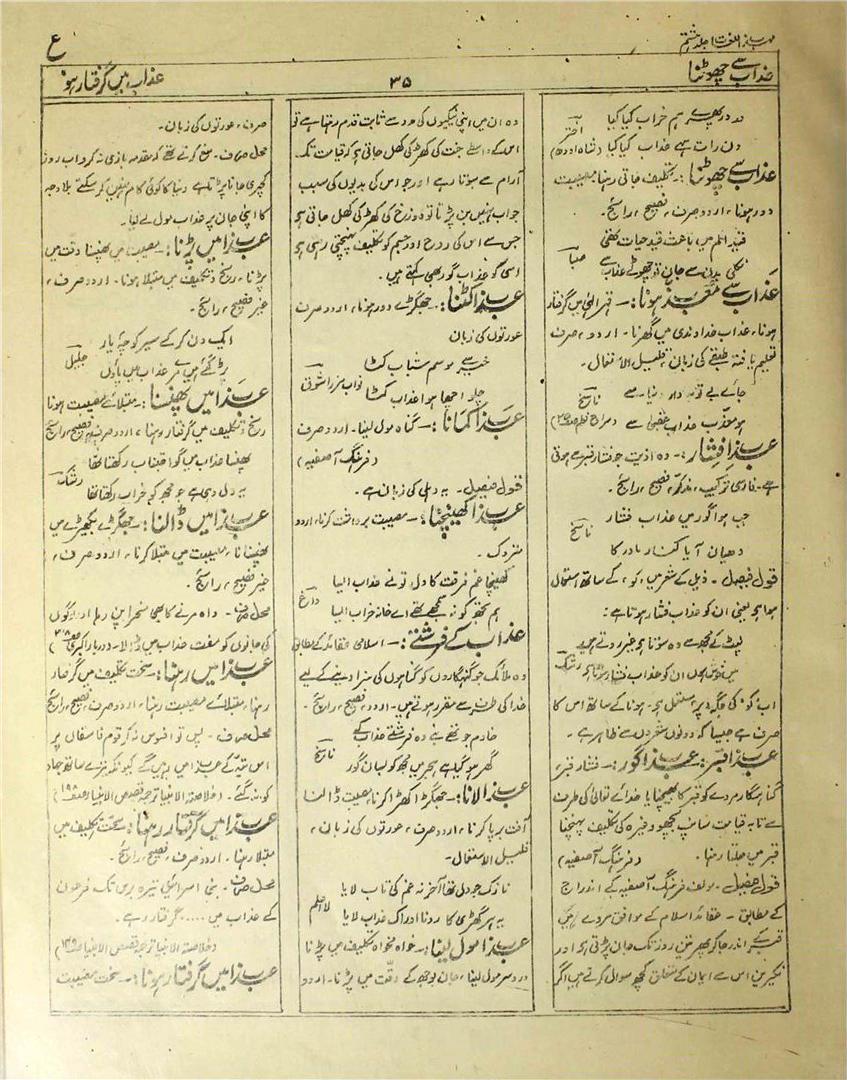 مہذب اللغات جلد ہشتم
ع
عذاب سے چھوٹنا
۳۵
عذاب میں گرفتار ہونا
در در پھرے ہم خراب کیا کیا
دن رات ہے عذاب کیا کیا (شاہ اودھ) اختر
عذاب سے چھوٹنا :۔ تکلیف جاتی رہنا مصیبت
دور ہونا، اردو صرف، فصیح، رائج۔
قید الم میں باعث قید حیات تھی
نکلی بدن سے جان تو چھوٹے عذاب سے صبا
عذاب سے معذب ہونا :۔ قہر الٰہی میں گرفتار
ہونا، عذاب خداوندی میں گھرنا۔ اردو، صرف
تعلیم یافتہ طبقے کی زبان، قلیل الاستعمال۔
جائے بے توبہ دار دنیا سے
ہو معذب عذاب عقبیٰ سے ناسخ
عذاب فشار :۔ وہ اذیت جو فشار قبر سے ہوتی
ہے۔ فارسی ترکیب، مذکر، فصیح، رائج۔
جب ہوا گور میں عذاب فشار
دھیان آیا کنار مادر کا ناسخ
قول فیصل۔ ذیل کے شعر میں، کو، کے ساتھ استعمال
ہوا ہے یعنی ان کو عذاب فشار ہوتا ہے:
لپٹ کے مجھ سے وہ سوتا ہے غیر روتے ہیں
میں خوش ہوں ان کو عذاب فشار ہوتا ہے رشک
اب کو، کی جگہ پر مستعمل ہے۔ ہونا کے ساتھ اس کا
صرف ہے جیسا کہ دونوں شعروں سے ظاہر ہے۔
عذاب قبر :، عذاب گور :۔ فشار قبر،
گناہگار مردے کو قبر کا بھینچنا یا خدائے تعالیٰ کی طرف
سے تا بہ قیامت سانپ بچھو وغیرہ کی تکلیف پہنچنا
قبر میں جلتا رہنا۔ (فرہنگ آصفیہ)
قول فیصل۔ مولف فرہنگ آصفیہ کے اندراج
کے مطابق۔ عقائد اسلام کے موافق مردے میں
قبر کے اندر جا کر پھر تین روز تک جان پڑتی ہے اور
نکیرین اس سے ایمان کے متعلق کچھ سوال کرتے ہیں اگر
وہ ان میں اپنی نیکیوں کی مدد سے ثابت قدم رہتا ہے تو
اس کے واسطے جنت کی کھڑکی کھل جاتی ہے کہ قیامت تک
آرام سے سوتا رہے اور جو اس کی بدیوں کی سبب
جواب نہیں بن پڑتا تو دوزخ کی کھڑکی کھل جاتی ہے
جس سے اس کی روح اور جسم کو تکلیف پہنچتی رہتی ہے
اسی کو عذاب گور بھی کہتے ہیں۔
عذاب کٹنا :۔ جھگڑے دور ہونا، اردو صرف
عورتوں کی زبان
خیر سے موسم شباب کٹا
چلو اچھا ہوا عذاب کٹا نواب مرزا شوق
عذاب کمانا :۔ گناہ مول لینا۔ اردو صرف
(فرہنگ آصفیہ)
قول فیصل۔ یہ دہلی کی زبان ہے۔
عذاب کھینچنا :۔ مصیبت برداشت کرنا، اردو
متروک۔
کھینچا غم فرقت کا دل، تو نے عذاب ایسا
ہم تجھ کو نہ سمجھے تھے اے خانہ خراب ایسا داغ
عذاب کے فرشتے :۔ اسلامی عقائد کے مطابق
وہ ملائک جو گنہگاروں کو گناہوں کی سزا دینے کے لیے
خدا کی طرف سے مقرر ہوتے ہیں۔ اردو، فصیح، رائج۔
خادم جو تھے بنے وہ فرشتے عذاب کے
گھر ہو گیا ہے ہجر میں مجھ کو بسان گور ناسخ
عذاب لانا :۔ جھگڑا کھڑا کرنا، مصیبت ڈالنا
آفت برپا کرنا، اردو صرف، عورتوں کی زبان،
قلیل الاستعمال۔
نازک جو دل تھا آخر نہ غم کی تاب لایا
یہ ہر گھڑی کا رونا اور اک عذاب لایا لا اعلم
عذاب مول لینا :۔ خواہ مخواہ تکلیف میں پڑنا
درد سر مول لینا، جان بوجھ کے دقت میں پڑنا۔ اردو
صرف، عورتوں کی زبان۔
محل صرف۔ منع کرتے تھے کہ مقدمہ بازی نہ کرو اب روز
کچہری جانا پڑتا ہے دنیا کا کوئی کام نہیں کر سکتے بلا وجہ
کا اپنی جان پر عذاب مول لے لیا۔
عذاب میں پڑنا :۔ مصیبت میں پھنسنا دقت میں
پڑنا، رنج و تکلیف میں مبتلا ہونا۔ اردو صرف،
غیر فصیح، رائج۔
ایک دن کر کے سیر کوچۂ یار
پڑ گئے ہیں مرے عذاب میں پاؤں جلیل
عذاب میں پھنسنا :۔ مبتلائے مصیبت ہونا
رنج و تکلیف میں گرفتار رہنا، اردو صرف، فصیح، رائج
پھنسا عذاب میں گو اجتناب رکھتا تھا
یہ دل وہی ہے جو مجھ کو خراب رکھتا تھا رشک
عذاب میں ڈالنا :۔ جھگڑے بکھیڑے میں
پھنسانا، مصیبت میں مبتلا کرنا، اردو صرف،
غیر فصیح، رائج۔
محل صرف۔ واہ مرنے کا بھی مسخرا پن رہا اور لوگوں
کی جانوں کو مفت عذاب میں ڈالا۔ (دربار اکبری
عذاب میں رہنا :۔ سخت تکلیف میں گرفتار
رہنا، مبتلائے مصیبت رہنا، اردو صرف، فصیح، رائج
محل صرف۔ پس تو افسوس نہ کر قوم فاسقاں پر
اس قید کے عذاب میں رہیں گے کیونکہ تیرے ساتھ جہاد
کو نہ گئے۔ (خلاصۃ الانبیا ترجمہ قصص الانبیا ص۱۹۸)
عذاب میں گرفتار رہنا :۔ سخت تکلیف میں
مبتلا رہنا۔ اردو صرف، فصیح، رائج۔
محل صرف۔ بنی اسرائیل تیرہ برس تک فرعون
کے عذاب میں ..... گرفتار رہے۔
(خلاصۃ الانبیا ترجمہ قصص الانبیا ص۱۳۹)
عذاب میں گرفتار ہونا :۔ سخت مصیبت